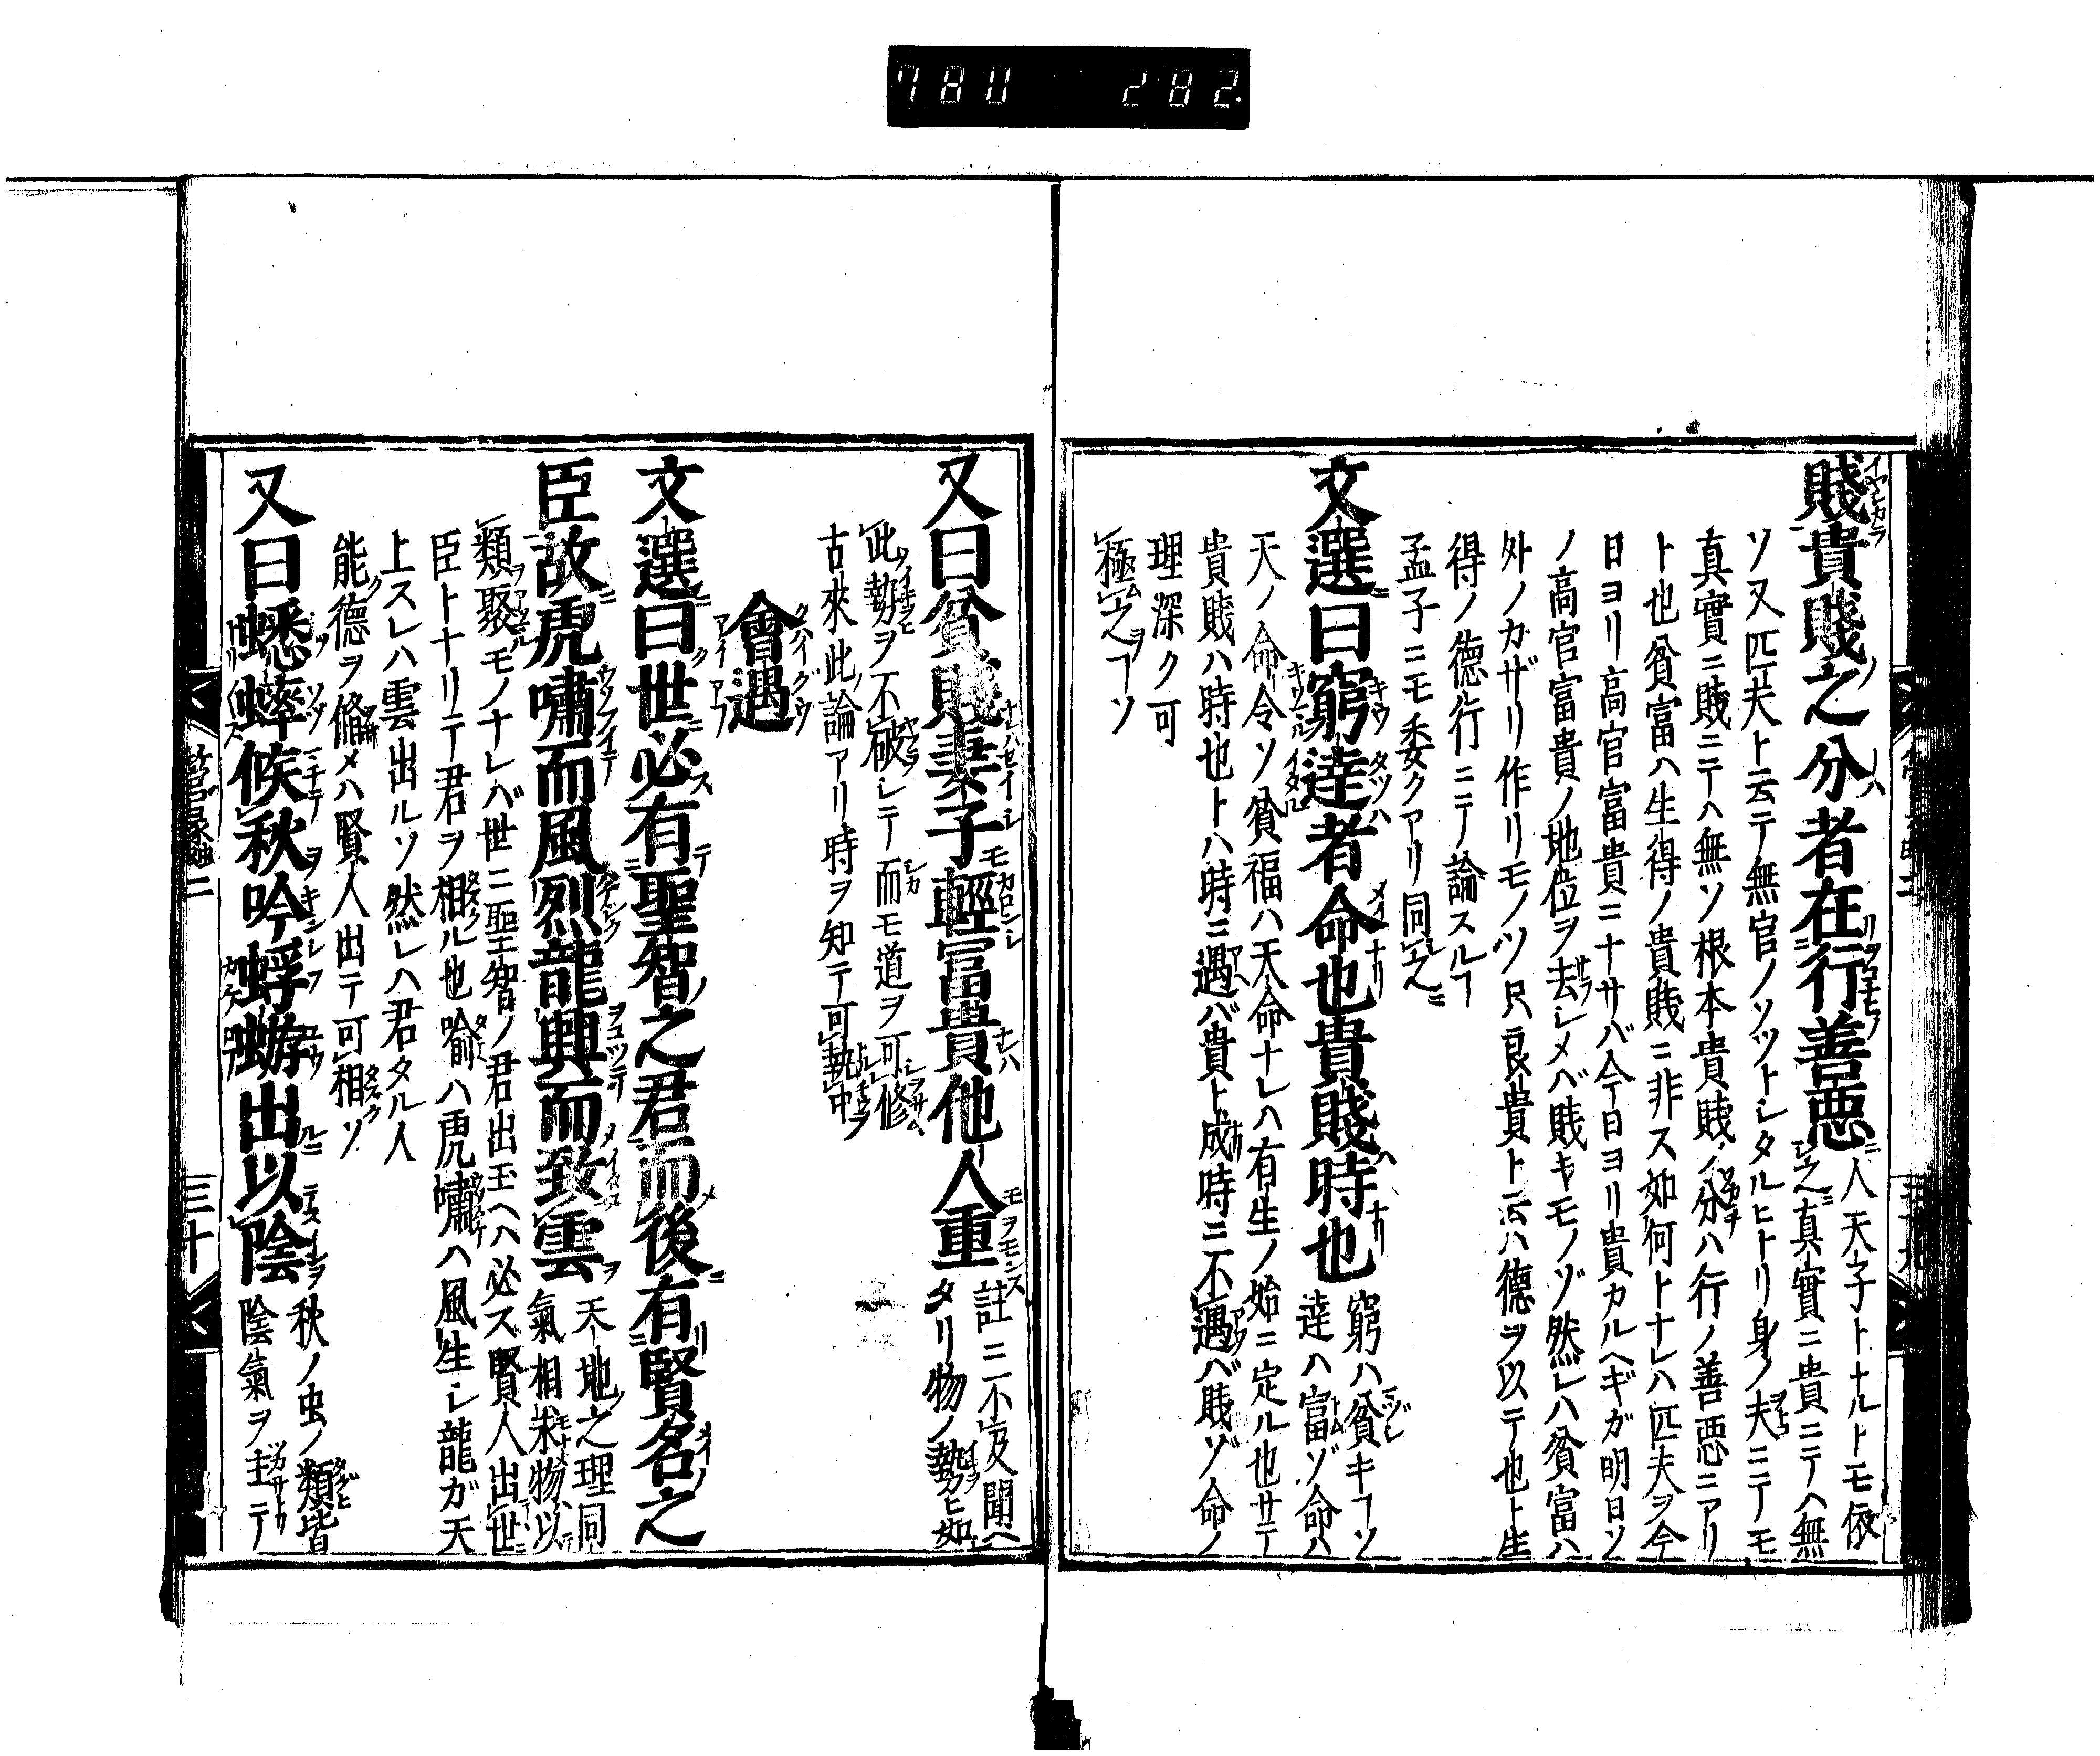 780 282.
賤貴賤之分者在行善悪
人天子トナルトモ依
之真實ニ貴ニテハ無
ソ又匹夫ト云テ無官ノソツトシタルヒトリ身ノ夫ニテモ
真實ニ賤ニテハ無ソ根本貴賤ノ分ハ行ノ善悪ニアリ
ト也貧富ハ生得ノ貴賤ニ非ス如何トナレハ匹夫ヲ今
日ヨリ高官富貴ニナサバ今日ヨリ貴カルヘギガ明日ソ
ノ高官富貴ノ地位ヲ去シメベ賤キモノゾ然レハ貧富ハ
外ノカザリ作リモノソ只良貴ト云ハ德ヲ以テ也ト生
得ノ德行ニテ論スルヿ
孟子ニモ委クアリ同之
文選曰窮達者命也貴賤時也
窮ハ貧キヿソ
達ハ富ゾ命ハ
天ノ命令ソ貧福ハ天命ナレハ有生ノ始ニ定ル也サテ
貴賤ハ時也トハ時ニ遇バ貴ト成時ニ不遇バ賤ゾ命ノ
理深ク可
極之ヿソ
又曰貧賤妻子輕冨貴他人重
註ニ不及聞ヘ
タリ物ノ勢ヒ如
此勢ヲ不破シテ而モ道ヲ可修
古來此論アリ時ヲ知テ可執中
會遇
文選曰世必有聖智之君而後有賢名之
臣故虎嘯而風烈龍興而致雲
天地之理同
氣相求物以
類聚モノナレバ世ニ聖智ノ君出玉ヘハ必ス賢人出世
臣トナリテ君ヲ相ル也喩ハ虎嘯ハ風生シ龍ガ天
上スレハ雲出ルソ然レハ君タル人
能德ヲ脩メハ賢人出テ可相ソ
又曰蟋蟀候秋吟蜉蝣出以陰
秋ノ虫ノ類皆
陰氣ヲ主テ
三十